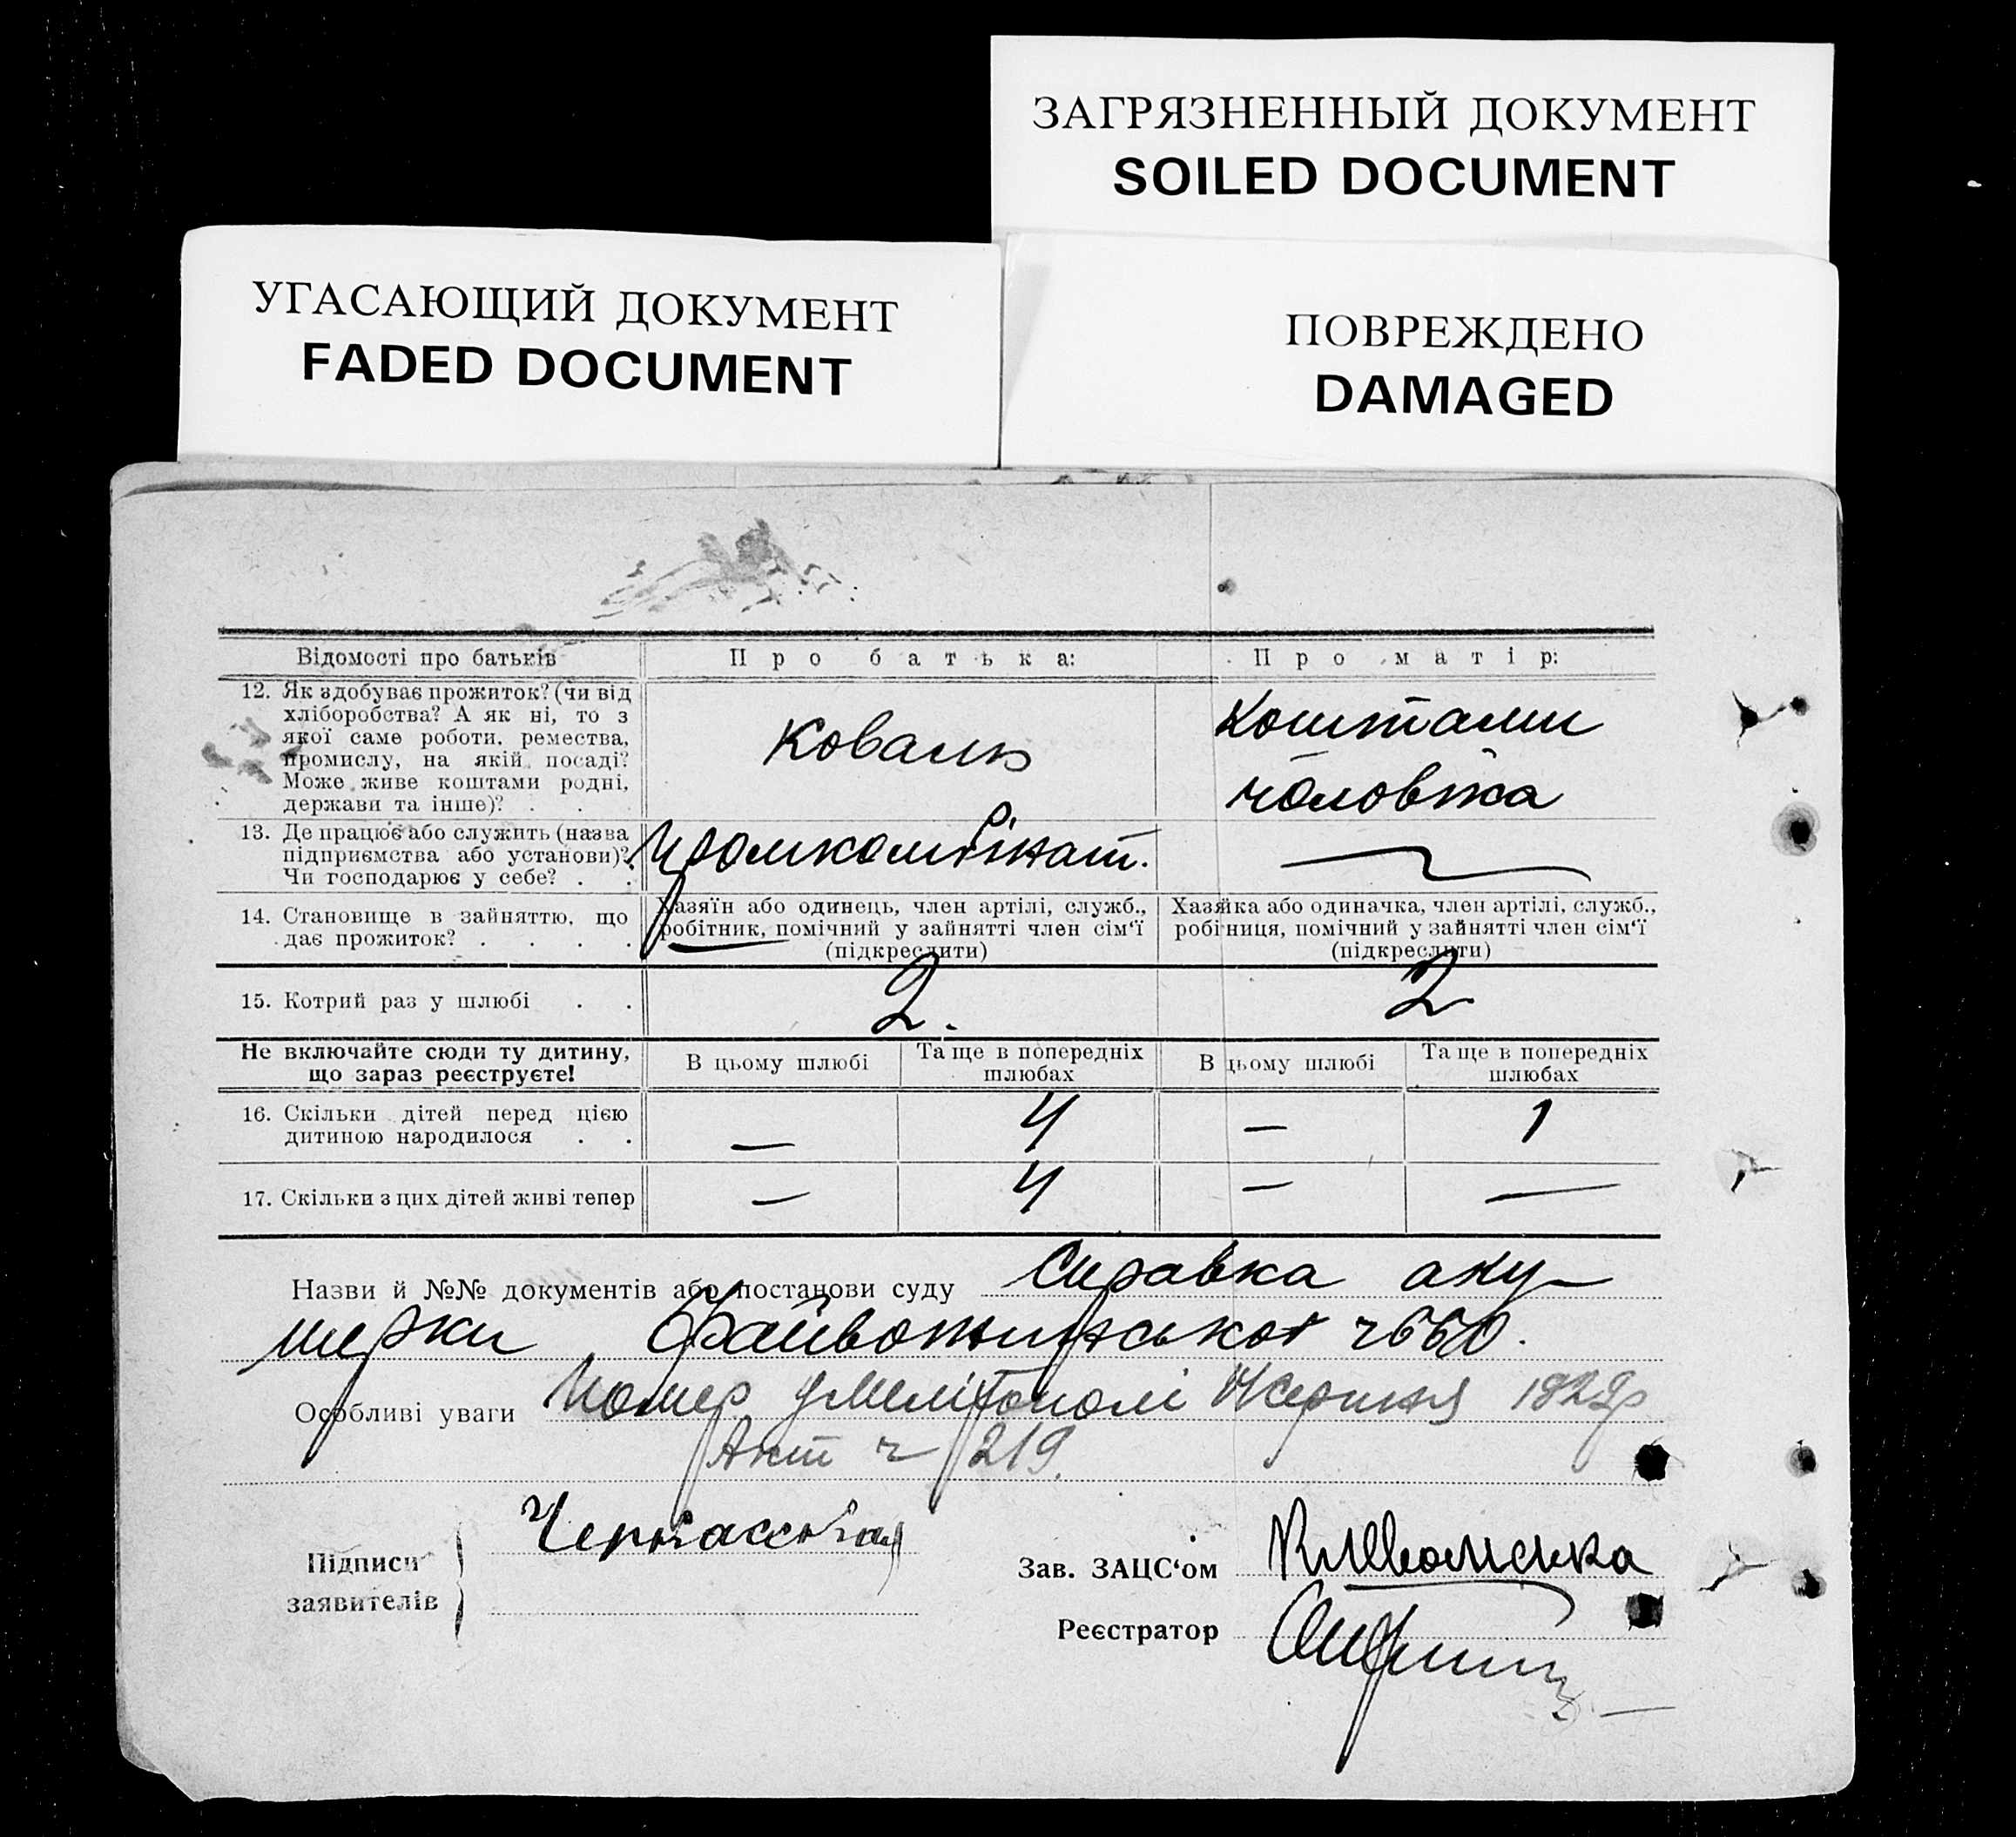 ЗАГРЯЗНЕННЫЙ ДОКУМЕНТ
SOILED DOCUMENT
УГАСАЮЩИЙ ДОКУМЕНТ
FADED DOCUMENT
ПОВРЕЖДЕНО
DAMAGED
Відомості про батьків
Про батька:
Про матір:
12. Як здобуває прожиток? (чи від
хліборобства? А як ні, то з
якої саме роботи, ремества,
промислу, на якій посаді?
Може живе коштами родні,
держави та інше)? . .
Коваль
Коштами
чоловіка
13. Де працює або служить (назва
підприємства або установи)?
Чи господарює у себе? . .
Промкомбінат.
14. Становище в зайняттю, що
дає прожиток? . . . .
Хазяїн або одинець, член артілі, служб.,
робітник, помічний у зайнятті член сім'ї
(підкреслити)
Хазяйка або одиначка, член артілі, служб.,
робітниця, помічний у зайнятті член сім'ї
(підкреслити)
15. Котрий раз у шлюбі . .
2.
2
Не включайте сюди ту дитину,
що зараз реєструєте!
В цьому шлюбі
Та ще в попередніх
шлюбах
В цьому шлюбі
Та ще в попередніх
шлюбах
16. Скільки дітей перед цією
дитиною народилося . .
—
4
—
1
17. Скільки з цих дітей живі тепер
—
4
—
—
Назви й №№ документів або постанови суду Справка аку-
шерки ч660.
Особливі уваги Помер у Мелітополі серпня
Акт ч 219.
Підписи
заявителів
Зав. ЗАЦС'ом
Реєстратор